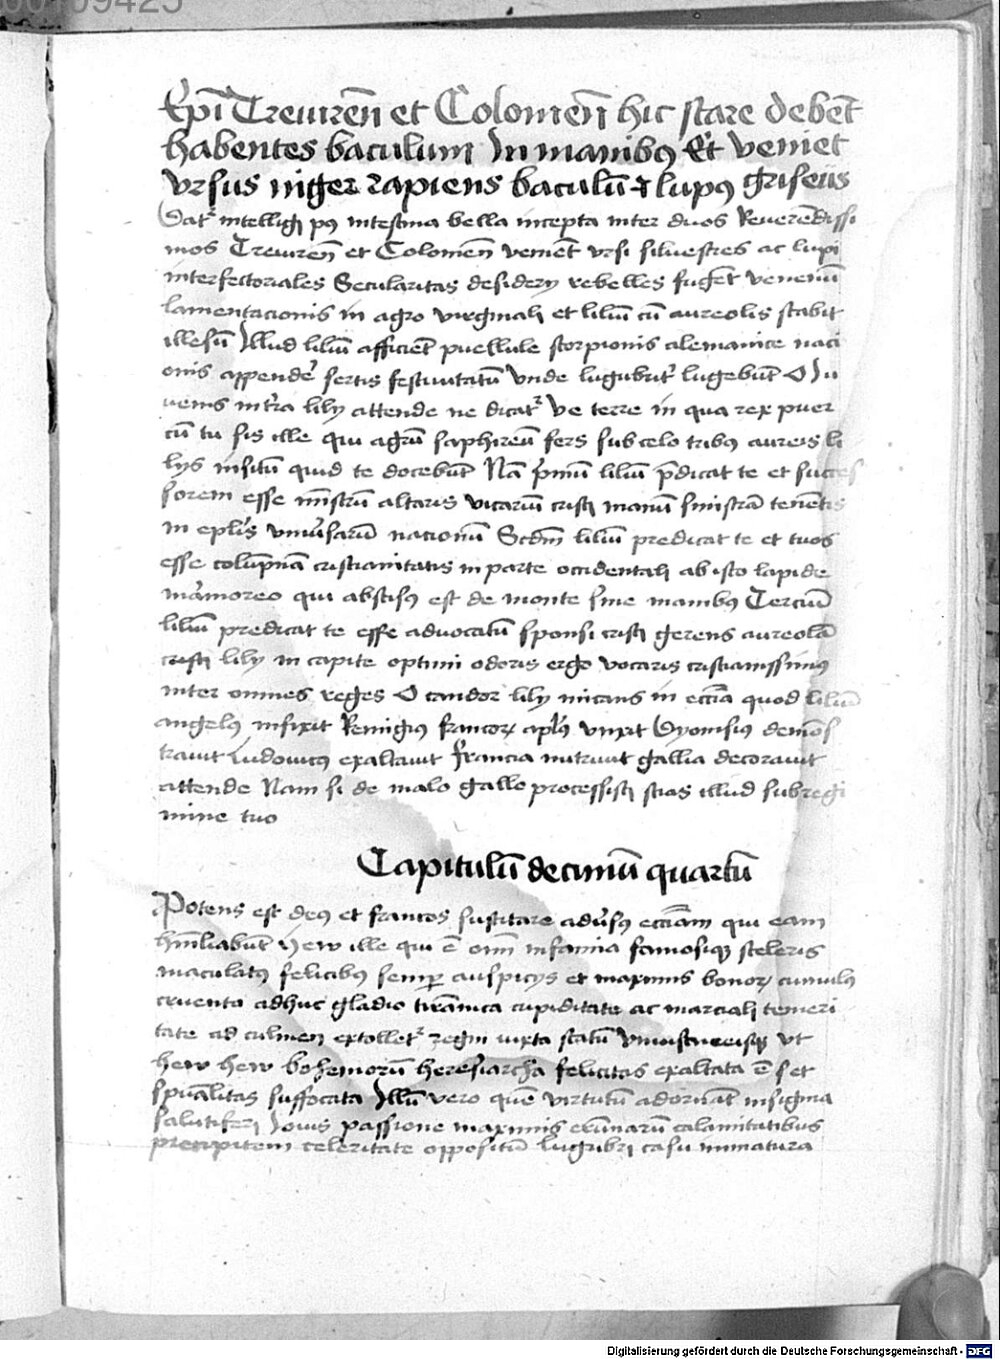 00109425
Epī Treuireñ et Colonieñ hic stare debēt
habentes baculum In manibꝯ Et veniet
vrsus niger rapiens baculū ⁊ lupꝯ griseus
Datᷣ intelligi pꝯ intestina bella incepta inter duos Reuerēdissi
mos Treuireñ et Colonieñ veniēt vrsi siluestres ac lupi
interfectoriales Secularitas desiderij rebelles fugēt venenū
lamentacionis in agro virginali et liliū cū aureolis stabit
illesū Illud liliū afficiēt puellule scorpionis alemanice naci
onis appendē sertis festiuitatū Vnde lugubriᷣ lugebūt O Iu
uenis intra lilij attende ne dicatᷣ Ve terre in qua rex puer
cū tu sis ille qui agrū saphireū fers sub celo tribꝯ aureis li
lijs insitū quid te docebūt Nā pͥmū liliū p̄dicat te et succes
sorem esse mīstrū altaris vicariū cristi manū sinistrā tenētis
in epl̄is vniūsarū nacionū Scdm̄ liliū predicat te et tuos
esse colūpnā cristianitatis in parte occidentali ab isto lapide
mārmoreo qui abscisꝯ est de monte sine manibꝯ Terciū
liliū predicat te esse aduocatū sponsi cristi gerens aureolā
cristi lilij in capite optimi odoris ergo vocaris cristianissimꝯ
inter omnes reges O candor lilij micans in eccīa quod liliū
angelꝯ infixit Remigiꝯ francoꝝ apl̄s vnxit Dyonisiꝯ demōs
trauit Ludouicꝯ exaltauit Francia nutriuit gallia decorauit
attende Nam si de malo gallo processisti scias illud sub regi
mine tuo
Capitulū decimū quartū
Potens est deꝯ et francos suscitare adūsꝯ eccīam qui eam
hūiliabūt Hew ille qui ē oīm infamia famosiqꝫ sceleris
maculatꝯ felicibꝯ semꝑ auspicijs et maximis bonoꝝ cumulis
cruento adhuc gladio tirānica cupiditate ac marciali temeri
tate ad culmen extolletᷣ regni iuxta statū vt
hew hew bohemorū heresiarcha felicitas exaltata ē set
spūalitas suffocata Illū vero quē virtutū adornāt insignia
salutiferi Iouis passione maximis erūnarū calamitatibus
precipitem celeritate oppositū lugubri casu inmatura
Digitalisierung gefördert durch die Deutsche Forschungsgemeinschaft - DFG